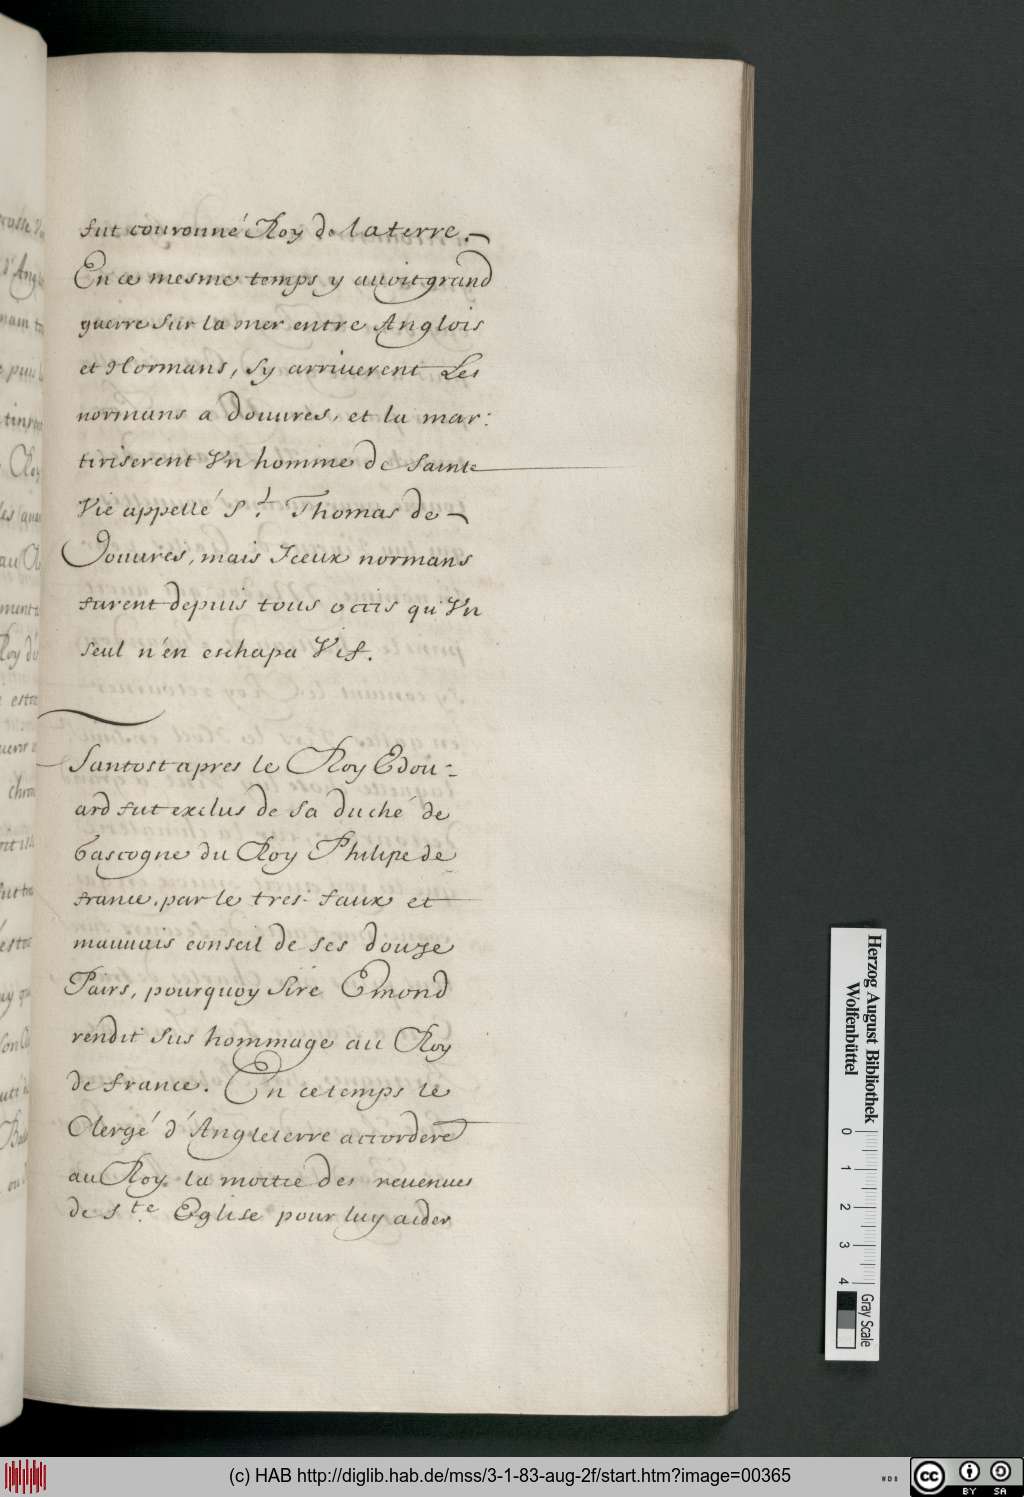 fut couronné Roy de la terre.
En ce mesme temps y auoit grand
guerre sur la mer entre Anglois
et Normans, sy arriuerent Les
normans a Douures, et la mar:
tiriserent Vn homme de sainte
Vie appellé S.t Thomas de
Douures, mais Iceux normans
furent depuis tous occis qu'Vn
seul n'en eschapa Vif.
Tantost apres le Roy Edou-
ard fut exclus de sa duché de
Gascogne du Roy Philipe de
france, par le tres faux et
mauuais conseil de ses douze
Pairs, pourquoy Sire Emond
rendit sus hommage au Roy
de france. En ce temps le
Clergé d'Angleterre accordere
au Roy la moitié des reuenues
de S.te Eglise pour luy aider
Herzog August Bibliothek
Wolfenbüttel
0 1 2 3 4
Gray Scale
(c) HAB http://diglib.hab.de/mss/3-1-83-aug-2f/start.htm?image=00365
WDB
cc BY SA